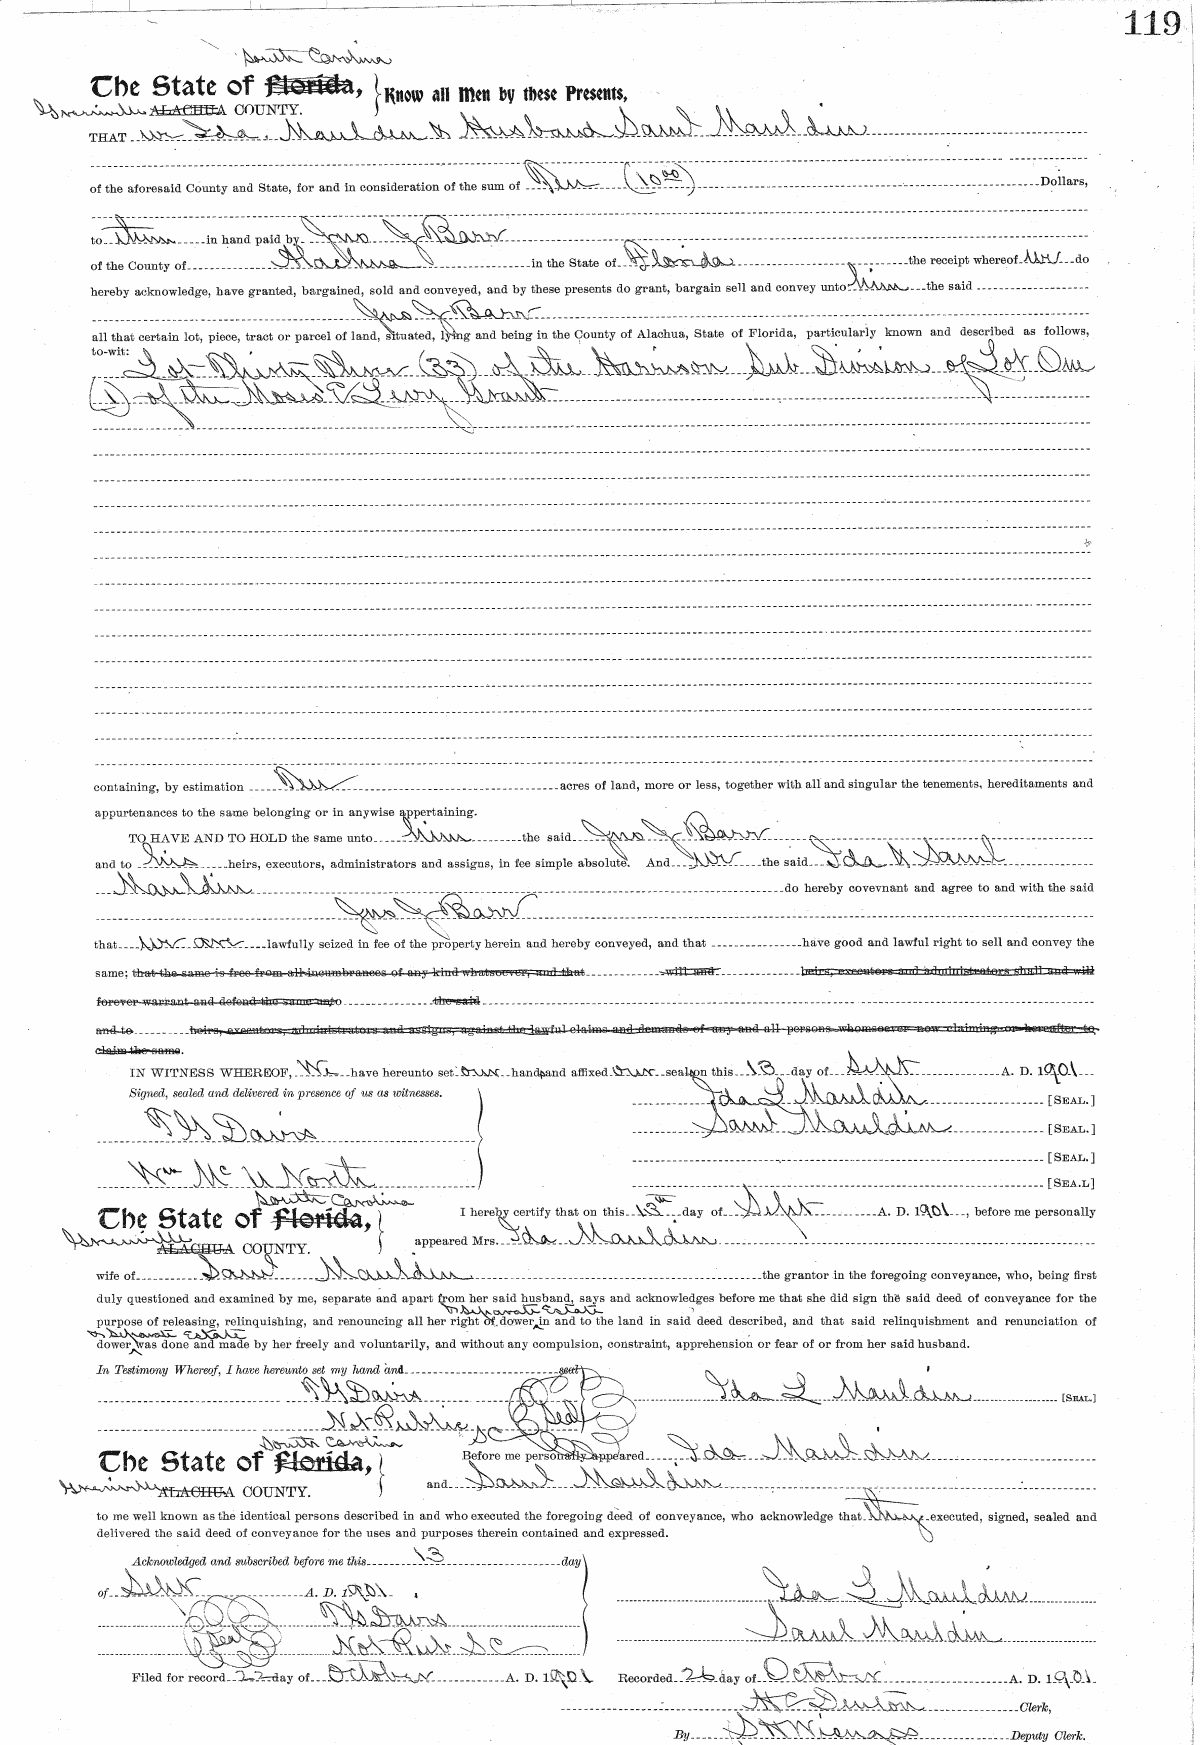 119
South Carolina
The State of Florida, Know all Men by these Presents,
Greenville ALACHUA COUNTY.
THAT we Ida. Mauldin & Husband Saml Mauldin
of the aforesaid County and State, for and in consideration of the sum of Ten (10.00) Dollars,
to them in hand paid by Jno J Barr
of the County of Alachua in the State of Florida the receipt whereof we do
hereby acknowledge, have granted, bargained, sold and conveyed, and by these presents do grant, bargain sell and convey unto him the said
Jno J Barr
all that certain lot, piece, tract or parcel of land, situated, lying and being in the County of Alachua, State of Florida, particularly known and described as follows,
to-wit:
Lot Thirty Three (33) of the Harrison Sub Division of Lot One
(1) of the Moses E Levy Grant
containing, by estimation Ten acres of land, more or less, together with all and singular the tenements, hereditaments and
appurtenances to the same belonging or in anywise appertaining.
TO HAVE AND TO HOLD the same unto him the said Jno J Barr
and to his heirs, executors, administrators and assigns, in fee simple absolute. And we the said Ida & Saml
Mauldin do hereby covevnant and agree to and with the said
Jno J Barr
that we are lawfully seized in fee of the property herein and hereby conveyed, and that have good and lawful right to sell and convey the
same; that the same is free from all incumbrances of any kind whatsoever, and that will and heirs, executors and administrators shall and will
forever warrant and defend the same unto the said
and to heirs, executors, administrators and assigns, against the lawful claims and demands of any and all persons whomsoever now claiming or hereafter to
claim the same.
IN WITNESS WHEREOF, We have hereunto set our hands and affixed our seals on this 13 day of Sept A. D. 1901
Signed, sealed and delivered in presence of us as witnesses.
Ida L Mauldin [SEAL.]
Saml Mauldin [SEAL.]
T G Davis
[SEAL.]
Wm Mc U North
[SEA.L]
South Carolina
The State of Florida, I hereby certify that on this 13th day of Sept A. D. 1901, before me personally
Greenville ALACHUA COUNTY. appeared Mrs. Ida Mauldin
wife of Saml Mauldin the grantor in the foregoing conveyance, who, being first
duly questioned and examined by me, separate and apart from her said husband, says and acknowledges before me that she did sign the said deed of conveyance for the
& Separate Estate
purpose of releasing, relinquishing, and renouncing all her right of dower in and to the land in said deed described, and that said relinquishment and renunciation of
& Separate Estate
dower was done and made by her freely and voluntarily, and without any compulsion, constraint, apprehension or fear of or from her said husband.
In Testimony Whereof, I have hereunto set my hand and seal
T G Davis Ida L Mauldin [SEAL.]
Not Public SC Seal
South Carolina
The State of Florida, Before me personally appeared Ida Mauldin
Greenville ALACHUA COUNTY. and Saml Mauldin
to me well known as the identical persons described in and who executed the foregoing deed of conveyance, who acknowledge that they executed, signed, sealed and
delivered the said deed of conveyance for the uses and purposes therein contained and expressed.
Acknowledged and subscribed before me this 13 day
of Sept A. D. 1901.
Ida L Mauldin
T G Davis
Saml Mauldin
Seal Not Pub SC
Filed for record 22 day of October A. D. 1901 Recorded 26 day of October A. D. 1901
H C Denton Clerk,
By S H Wienges Deputy Clerk.